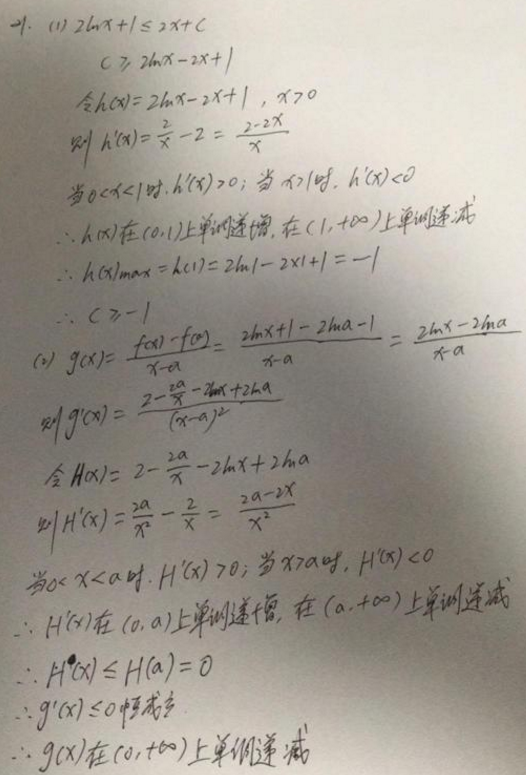 21. (1) 2lnx+1≤2x+c
c≥2lnx-2x+1
令h(x)=2lnx-2x+1, x>0
则h'(x)=2/x-2=(2-2x)/x
当0<x<1时, h'(x)>0; 当x>1时, h'(x)<0
∴h(x)在(0,1)上单调递增, 在(1,+∞)上单调递减
∴h(x)max=h(1)=2ln1-2×1+1=-1
∴c≥-1
(2) g(x)=(f(x)-f(a))/(x-a)=(2lnx+1-2lna-1)/(x-a)=(2lnx-2lna)/(x-a)
则g'(x)=(2-2a/x-2lnx+2lna)/(x-a)²
令H(x)=2-2a/x-2lnx+2lna
则H'(x)=2a/x²-2/x=(2a-2x)/x²
当0<x<a时, H'(x)>0; 当x>a时, H'(x)<0
∴H'(x)在(0,a)上单调递增, 在(a,+∞)上单调递减
∴H(x)≤H(a)=0
∴g'(x)≤0恒成立
∴g(x)在(0,+∞)上单调递减